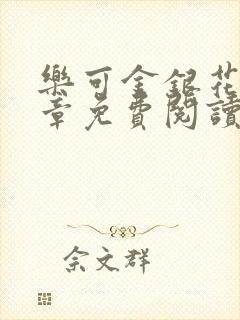 樂可金銀花
章免費閱讀
佘文群